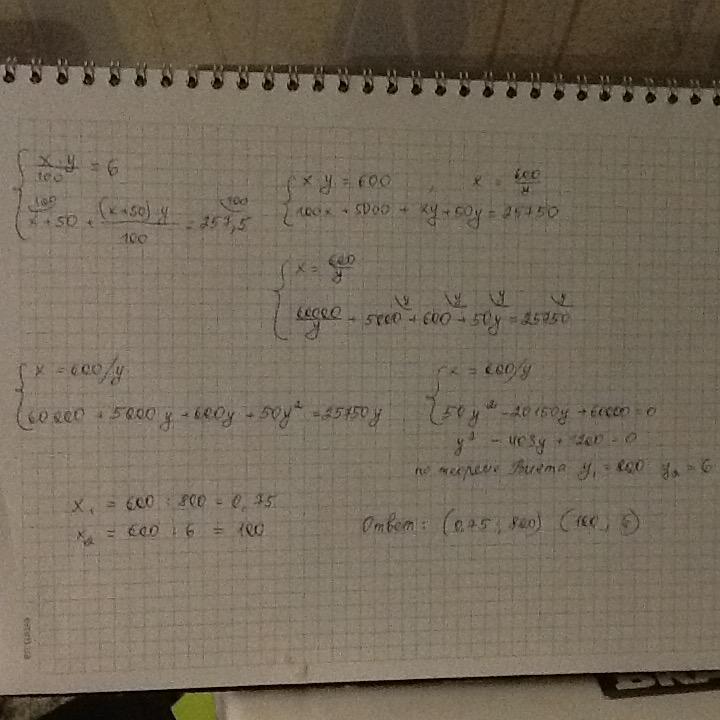 { x · y / 100 = 6
{ x · y = 600 , x = 600/y
{ x + 50 + (x+50) · y / 100 = 257,5
{ 100x + 5000 + xy + 50y = 25750
{ x = 600/y
{ 60000/y + 5000 + 600 + 50y = 25750
{ x = 600/y
{ x = 600/y
{ 60000 + 5000y + 600y + 50y² = 25750y
{ 50y² - 20150y + 60000 = 0
y² - 403y + 1200 = 0
по теореме Виета y₁ = 800 y₂ = 6
x₁ = 600 : 800 = 0,75
x₂ = 600 : 6 = 100
Ответ: (0,75 ; 800) (100 ; 6)